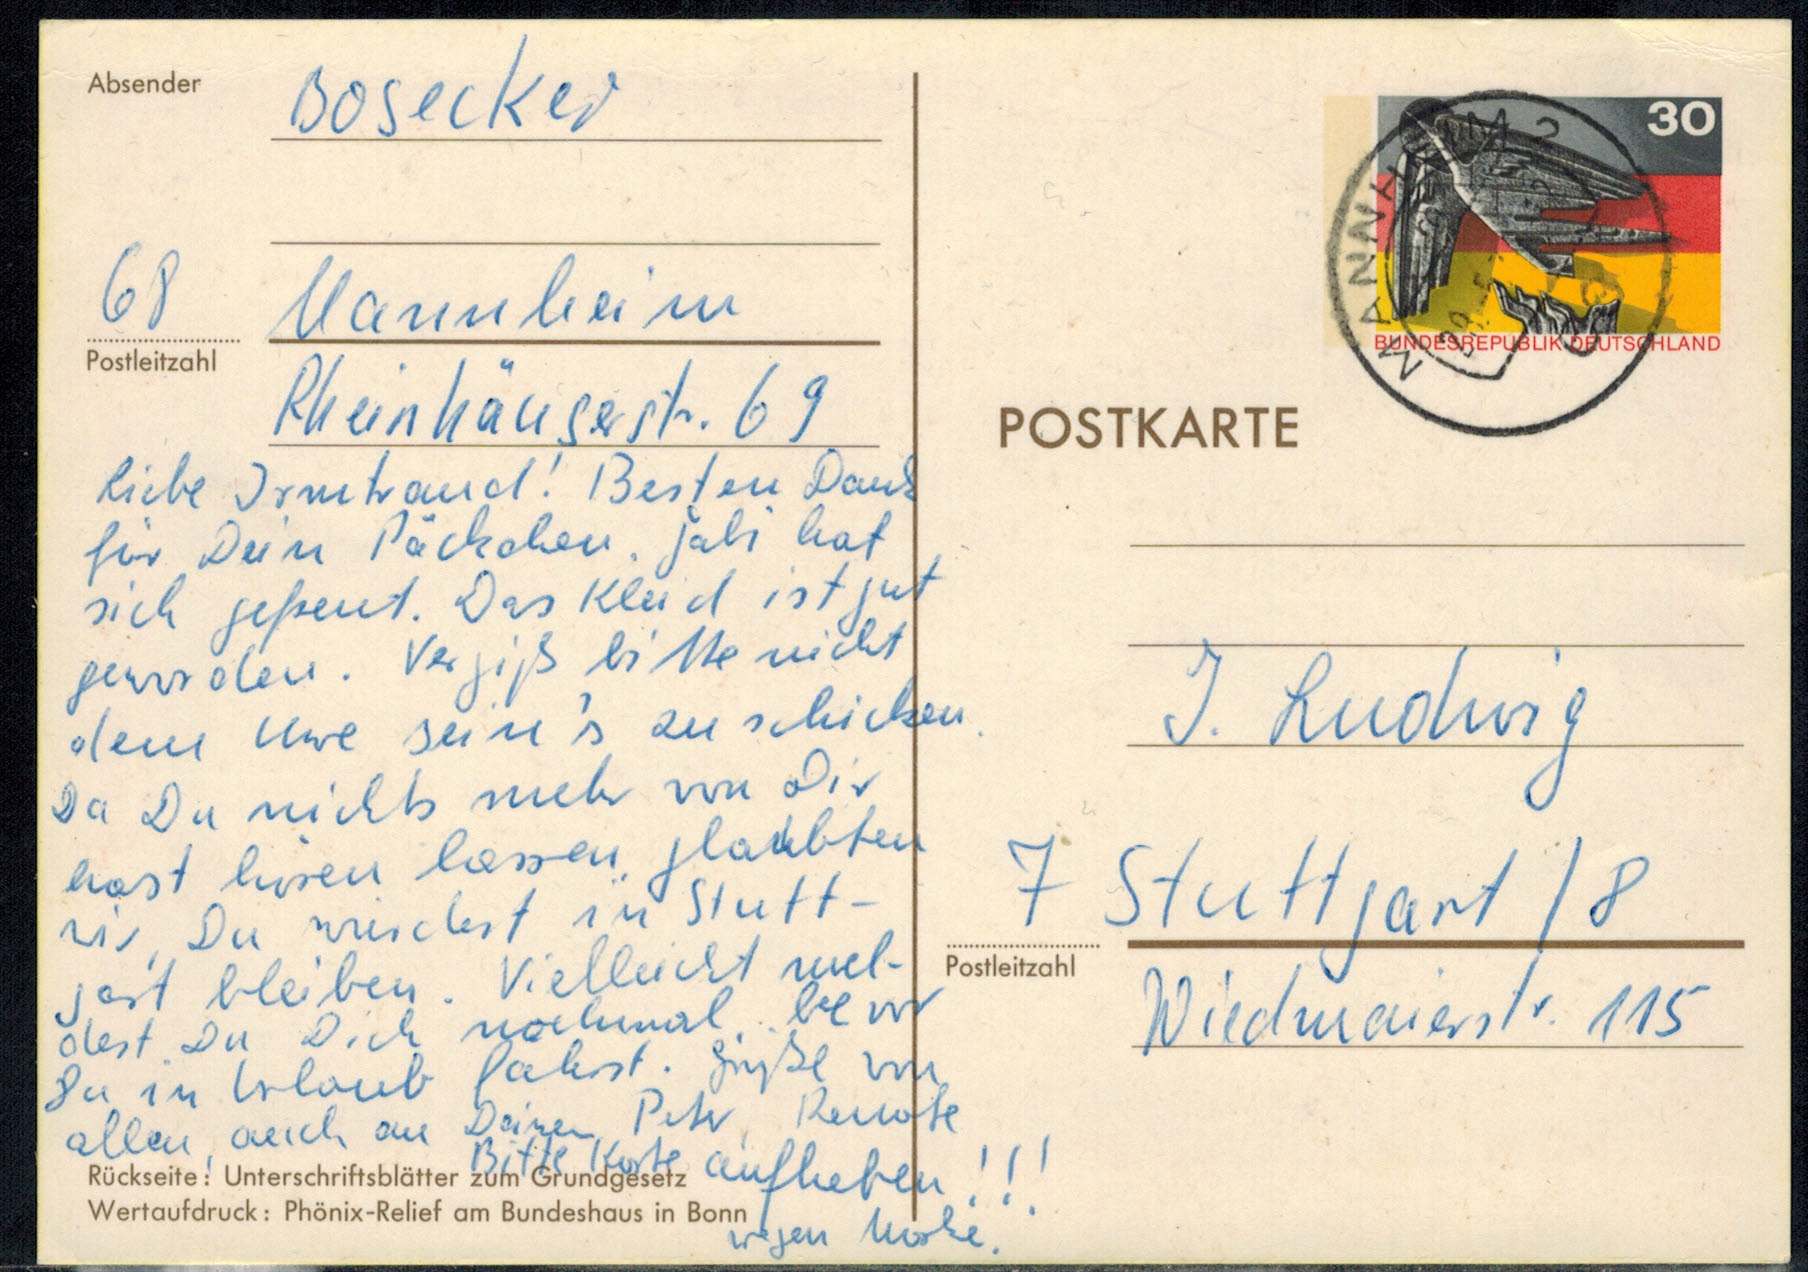 Absender
Bosecker
68 Mannheim
Postleitzahl
Rheinhäuserstr. 69
Liebe Irmtraud! Besten Dank
für Dein Päckchen. Gabi hat
sich gefreut. Das Kleid ist gut
geworden. Vergiß bitte nicht
dem Uwe sein's zu schicken.
Da Du nichts mehr von Dir
hast hören lassen, glaubten
wir, Du würdest in Stutt-
gart bleiben. Vielleicht mel-
dest Du Dich nochmal, bevor
Du in Urlaub fährst. Grüße von
allen, auch an Deinen Peter, Renate
Bitte Karte aufheben!!!
wegen Marke.
Rückseite: Unterschriftsblätter zum Grundgesetz
Wertaufdruck: Phönix-Relief am Bundeshaus in Bonn
30
BUNDESREPUBLIK DEUTSCHLAND
MANNHEIM 2
POSTKARTE
I. Ludwig
7 Stuttgart / 8
Postleitzahl
Wiedmaierstr. 115